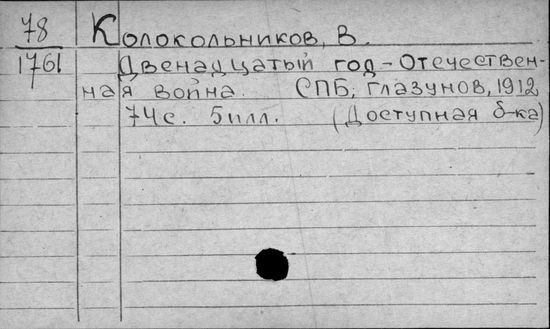 78 Колокольников, В.
1761 Двенадцатый год - Отечествен-
ная война. СПБ, Глазунов, 1912
74с. 5илл. (Доступная б-ка)